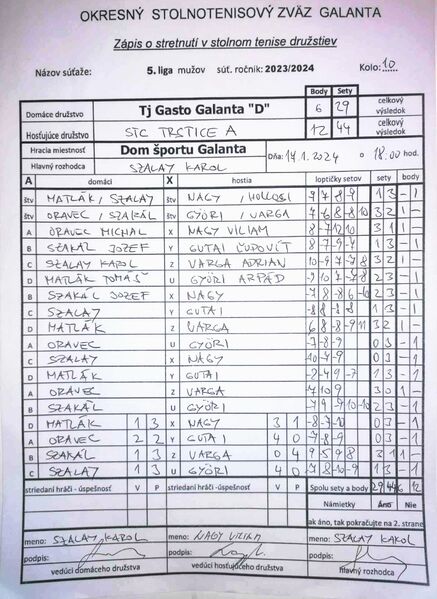 OKRESNÝ STOLNOTENISOVÝ ZVÄZ GALANTA
Zápis o stretnutí v stolnom tenise družstiev
Názov súťaže: 5. liga mužov súť. ročník: 2023/2024 Kolo: 10
Body Sety
Domáce družstvo Tj Gasto Galanta "D" 6 29 celkový výsledok
Hosťujúce družstvo STC TRSTICE A 12 44 celkový výsledok
Hracia miestnosť Dom športu Galanta Dňa: 2024 o 18.00 hod.
Hlavný rozhodca SZALAY KAROL
A domáci X hostia loptičky setov sety body
štv MATLÁK / SZALAY štv NAGY / HOLLOSI 7 7 8 -9 1 3 - 1
štv ORAVEC / SZAKÁL štv GYÖRI / VARGA 3 2 1 -
A ORAVEC MICHAL X NAGY VILIAM 3 1 1 -
B SZAKÁL JOZEF Y GUTAI ĽUDOVÍT 8 -7 -9 -7 1 3 - 1
C SZALAY KAROL Z VARGA ADRIAN 2 3 - 1
D MATLÁK TOMÁŠ U GYÖRI ARPÁD 2 3 - 1
B SZAKÁL JOZEF X NAGY 2 3 - 1
C SZALAY Y GUTAI 1 3 - 1
D MATLÁK Z VARGA 3 2 1 -
A ORAVEC U GYÖRI 0 3 - 1
C SZALAY X NAGY 0 3 - 1
D MATLÁK Y GUTAI 1 3 - 1
A ORAVEC Z VARGA 7 10 9 3 0 1 -
B SZAKÁL U GYÖRI 2 3 - 1
D MATLÁK 1 3 X NAGY 3 1 0 3 - 1
A ORAVEC 2 2 Y GUTAI 4 0 -7 -8 -9 0 3 - 1
B SZAKÁL 1 3 Z VARGA 0 4 9 5 -9 8 3 1 1 -
C SZALAY 1 3 U GYÖRI 4 0 1 3 - 1
striedaní hráči - úspešnosť V P striedaní hráči - úspešnosť V P Spolu sety a body 29 44 6 12
Námietky Áno Nie
ak áno, tak pokračujte na 2. strane
meno: SZALAY KAROL meno: NAGY VILIAM meno: SZALAY KAROL
podpis: podpis: podpis:
vedúci domáceho družstva vedúci hosťujúceho družstva hlavný rozhodca